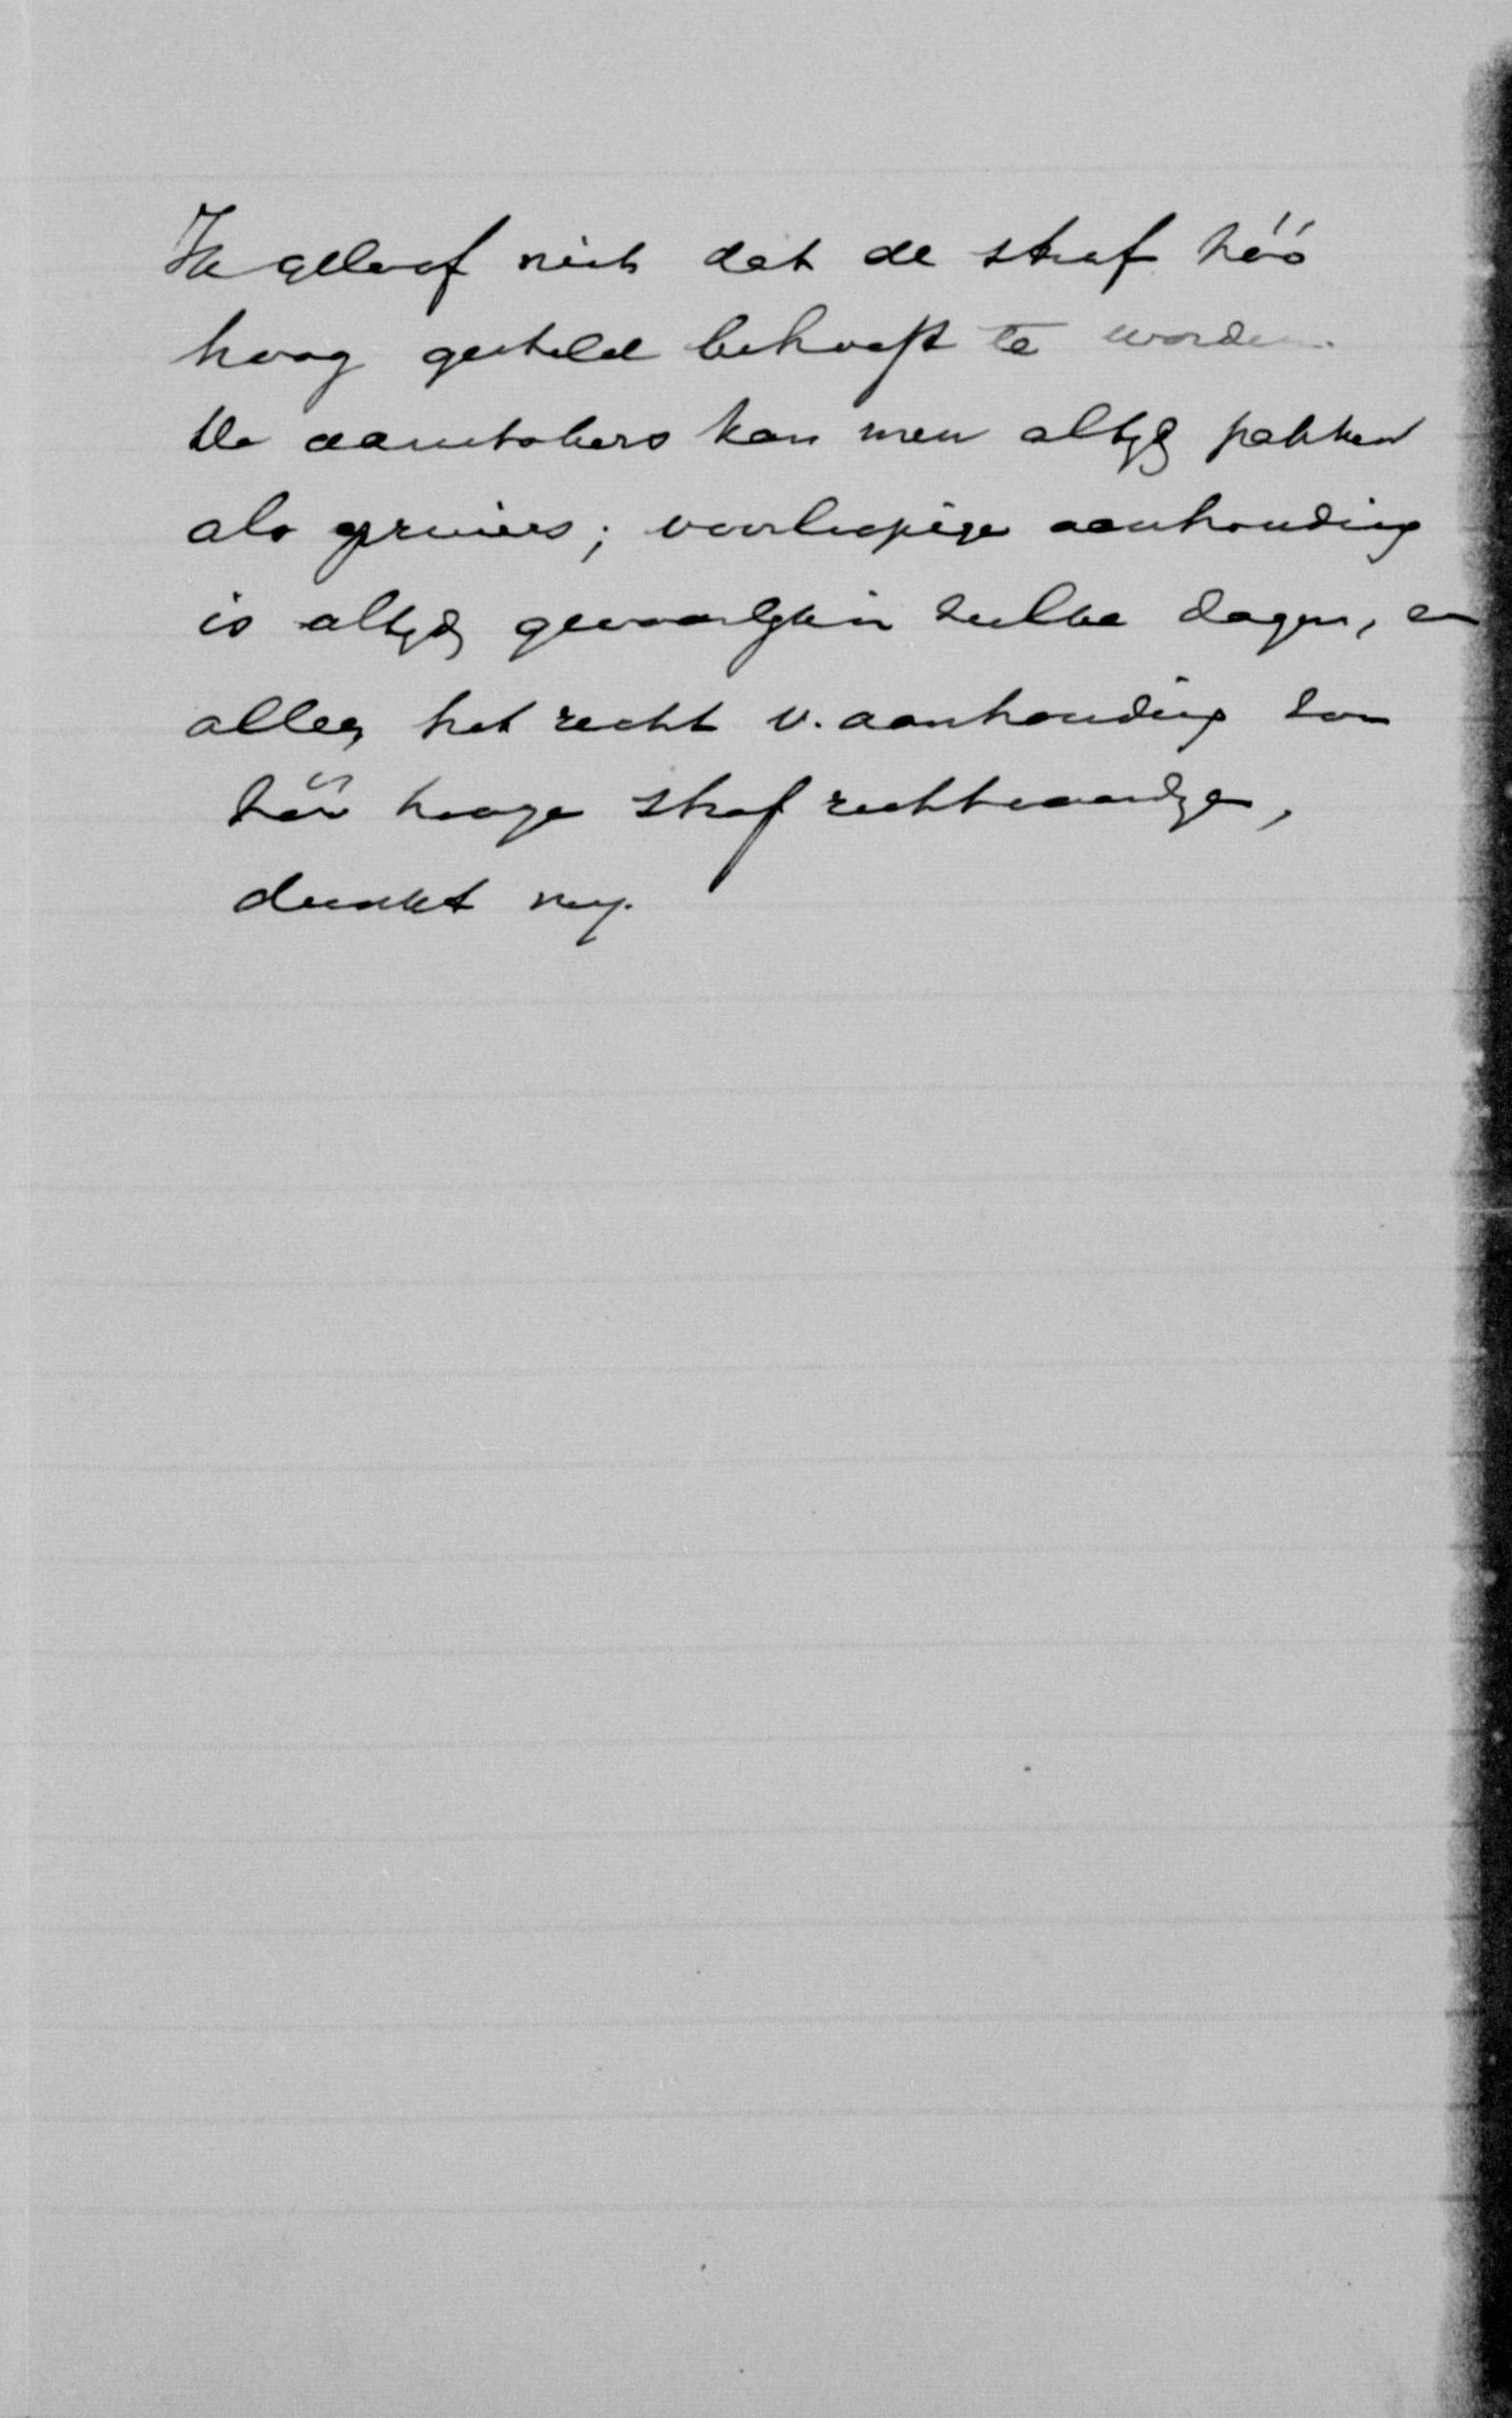 Ik geloof niet dat de straf zóó
hoog gesteld behoeft te worden.
De aanstokers kan men altijd pakken
als opruiers; voorloopige aanhouding
is altijd gevaarlijk in zulke dagen, en
alleen het recht v. aanhouding zou
zóó hooge straf rechtvaardigen,
dunkt mij.